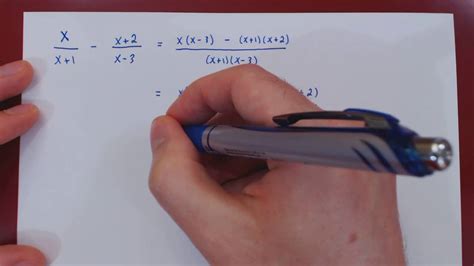 x/(x+1) - (x+2)/(x-3) = (x(x-3) - (x+1)(x+2))/((x+1)(x-3))
= +2)